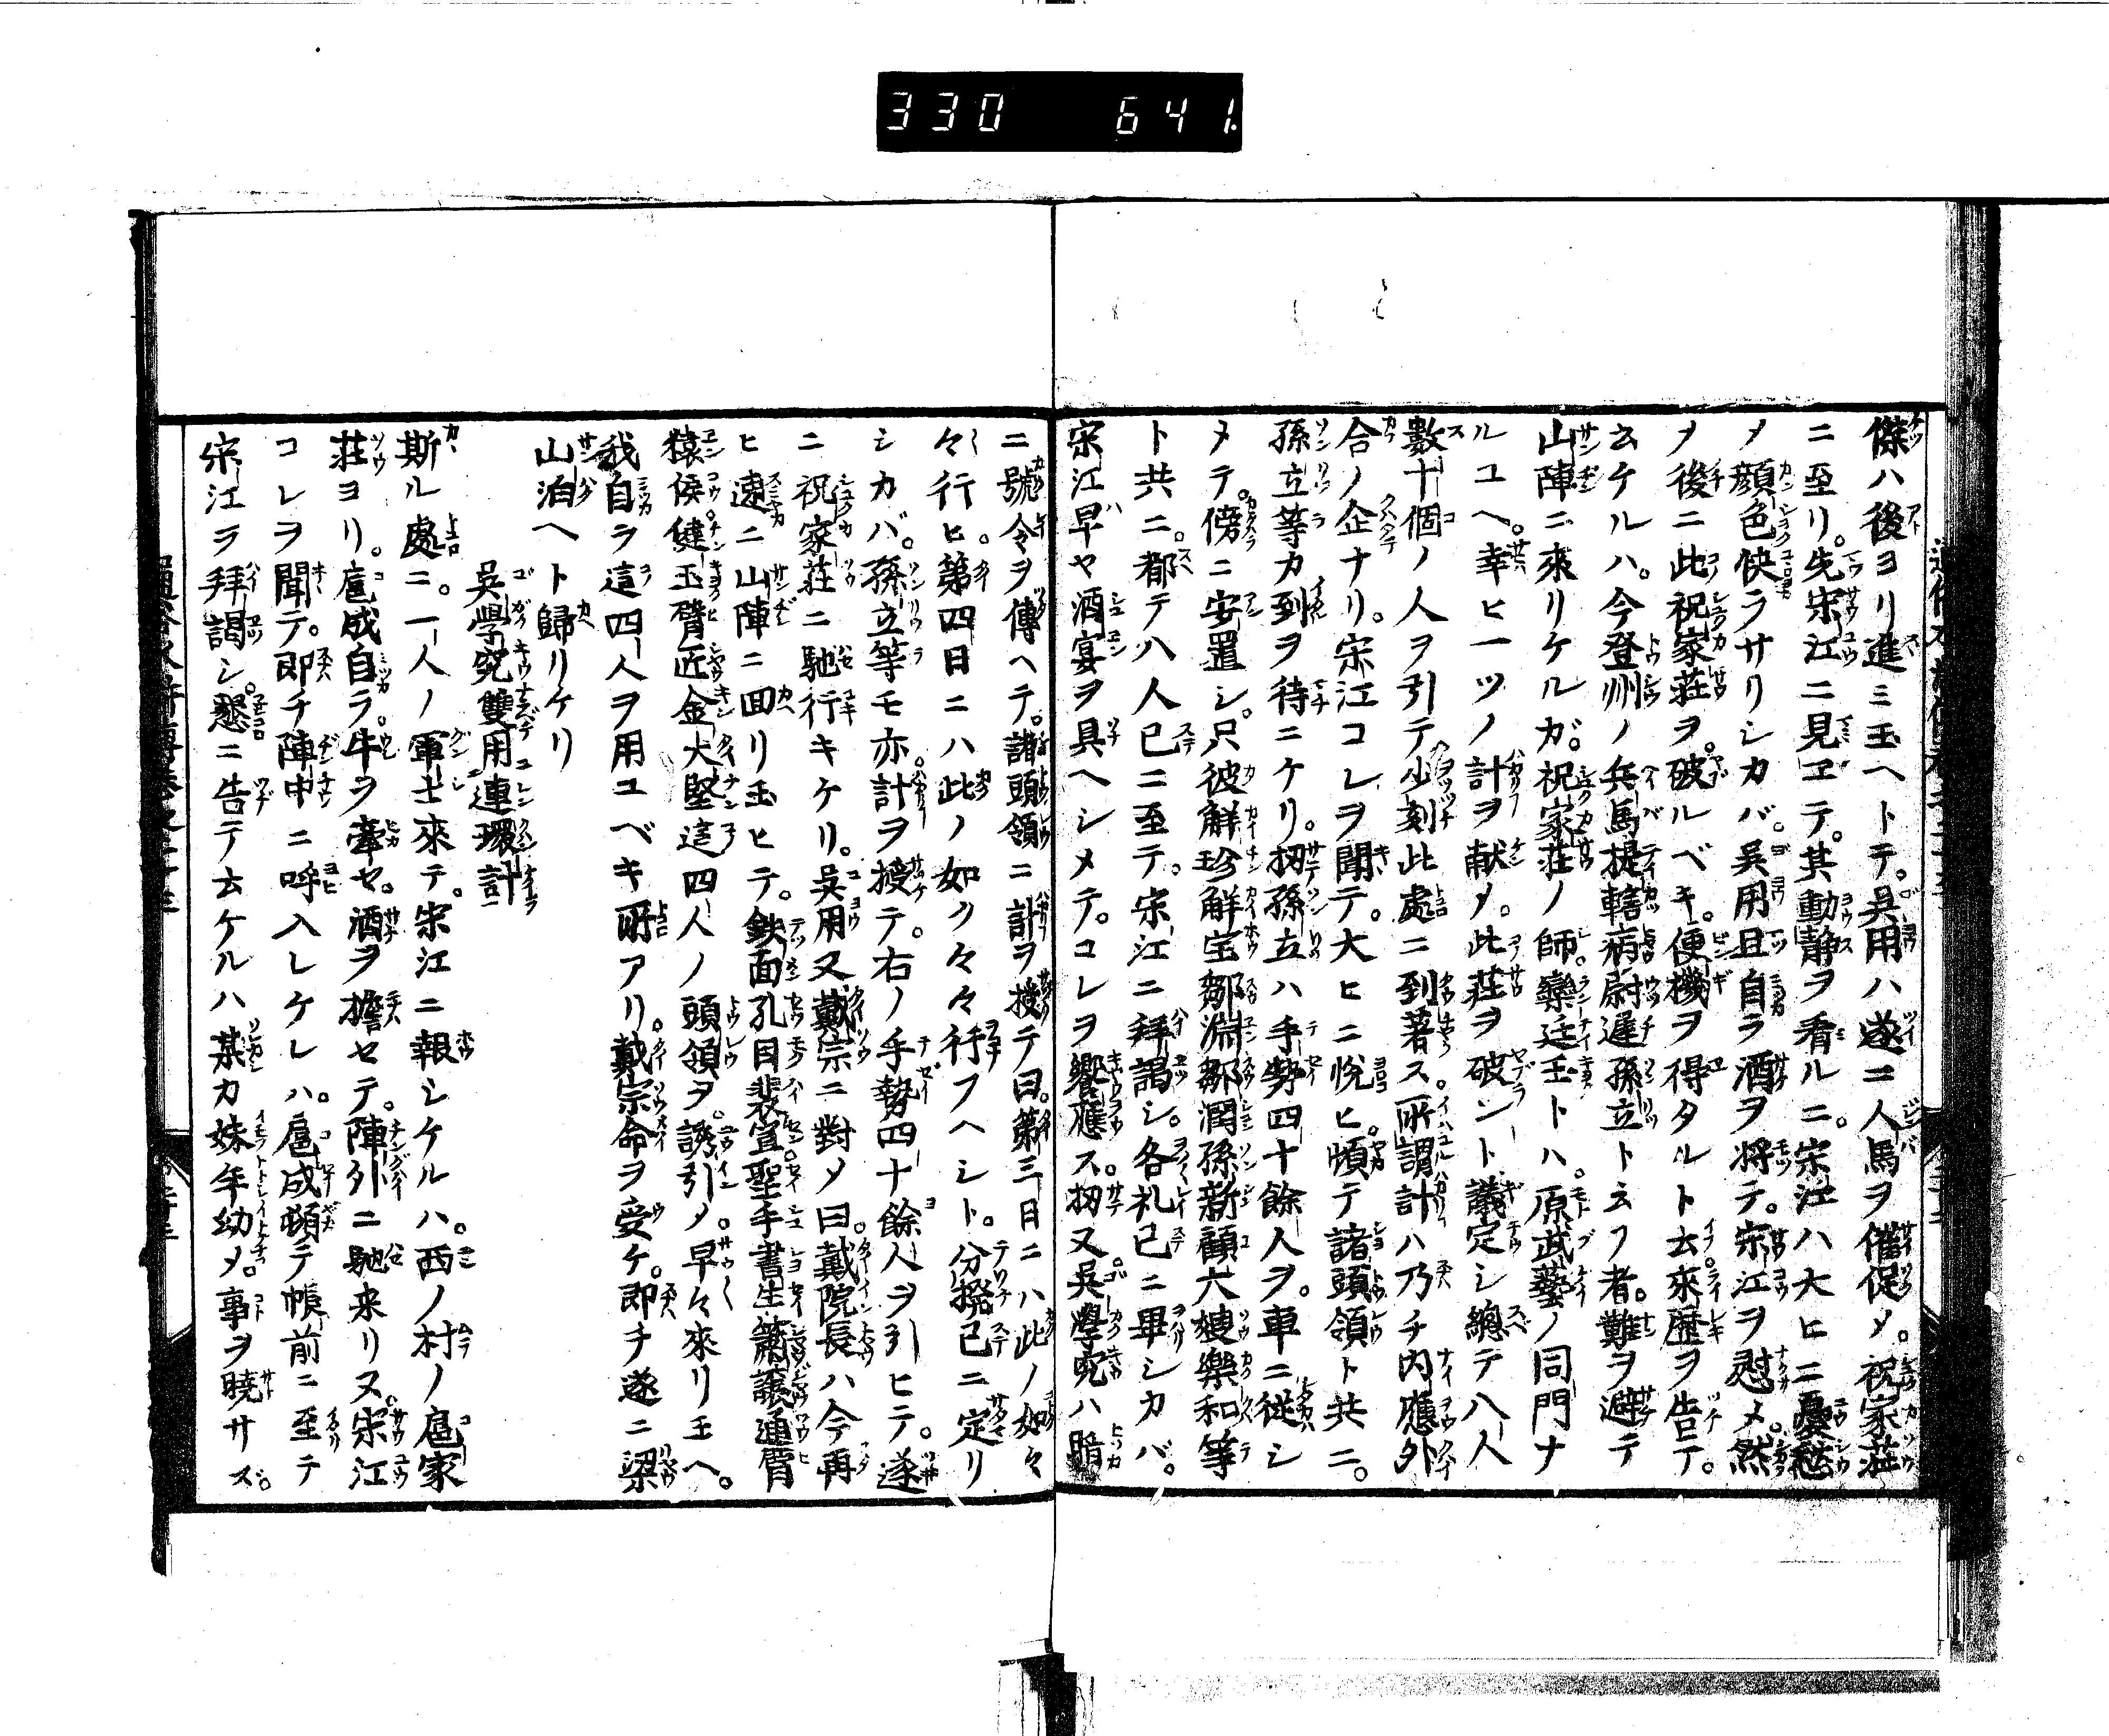 330 641
傑ハ後ヨリ進ミ玉ヘトテ。呉用ハ遂ニ人馬ヲ催促メ。祝家莊
ニ至リ。先宋江ニ見ヱテ。其動静ヲ看ルニ。宋江ハ大ヒニ憂愁
メ顔色快ラサリシカバ。呉用且自ラ酒ヲ将テ。宋江ヲ慰メ。然
ヲ後ニ此祝家莊ヲ。破ルベキ。便機ヲ得タルト云來歴ヲ告テ。
云ケルハ。今登州ノ兵馬提轄病尉遅孫立ト云フ者。難ヲ避テ
山陣ニ來リケルガ。祝家莊ノ師。欒廷玉トハ。原武藝ノ同門ナ
ルユヘ。幸ヒ一ツノ計ヲ献メ。此莊ヲ破ント議定シ總テ八人
數十個ノ人ヲ引テ少刻此處ニ到著ス。所謂計ハ乃チ内應外
合ノ企ナリ。宋江コレヲ聞テ。大ヒニ悦ヒ。頓テ諸頭領ト共ニ。
孫立等カ到ヲ待ニケリ。扨孫立ハ手勢四十餘人ヲ。車ニ従シ
メテ。傍ニ安置シ。只彼解珍解宝鄒淵鄒潤孫新顧大嫂樂和等
ト共ニ。都テ八人已ニ至テ。宋江ニ拜謁シ。各礼已ニ畢シカバ。
宋江早ヤ酒宴ヲ具ヘシメテ。コレヲ饗應ス。扨又呉學究ハ暗
ニ號令ヲ傳ヘテ。諸頭領ニ計ヲ授テ曰。第三日ニハ此ノ如々
々行ヒ。第四日ニハ此ノ如ク々々行フヘシト。分撥已ニ定リ
シカバ。孫立等モ亦計ヲ授テ。右ノ手勢四十餘人ヲ引ヒテ。遂
ニ祝家莊ニ馳行キケリ。呉用又戴宗ニ對メ曰。戴院長ハ今再
ヒ速ニ山陣ニ回リ玉ヒテ。鉄面孔目裴宣。聖手書生簫譲通臂
猿侯健玉臂匠金大堅這四人ノ頭領ヲ。誘引メ。早々來リ玉ヘ。
我自ラ這四人ヲ用ユベキ所アリ。戴宗命ヲ受ケ。即チ遂ニ梁
山泊ヘト歸リケリ
呉學究雙用連環計
斯ル處ニ。一人ノ軍士來テ。宋江ニ報シケルハ。西ノ村ノ扈家
莊ヨリ。扈成自ラ。牛ヲ牽セ。酒ヲ擔セテ。陣外ニ馳来リヌ。宋江
コレヲ聞テ。即チ陣中ニ呼入レケレハ。扈成頓テ帳前ニ至テ
宋江ヲ拜謁シ。懇ニ告テ云ケルハ某カ妹年幼メ。事ヲ曉サズ。